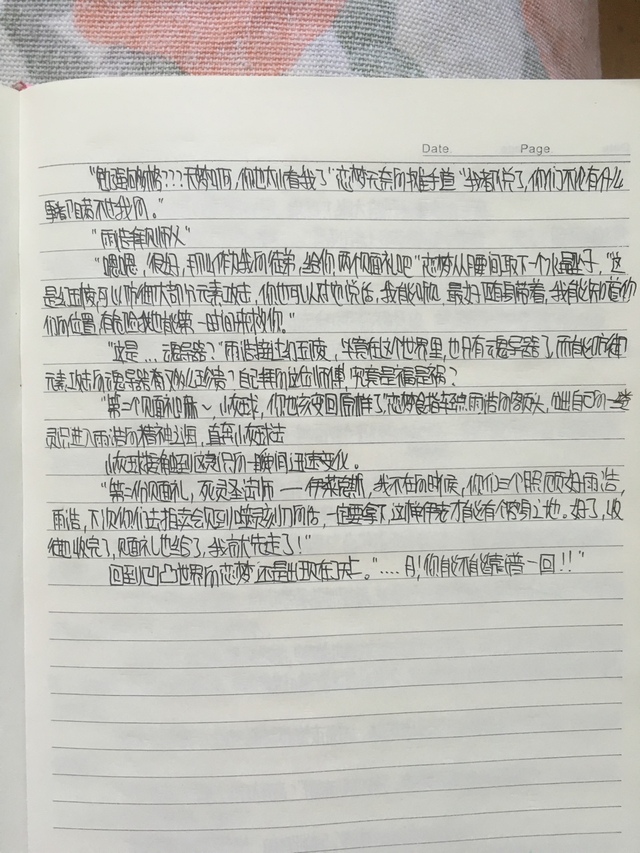 Date.
Page
"勉强够格???天梦哥啊,你也太小看我了"恋梦无奈的摊手道"我都说了,你们不论有什么
事都瞒不过我的。"
"雨浩拜见师父"
"嗯嗯,很好,那以作为我的徒弟,给你两个见面礼吧"恋梦从腰间取下一个水晶坠子,"这
是红玉髓可以防御大部分元素攻击,你也可以对她说话,我能听见,最好随身带着,我能知道你
们的位置,有危险我也能第一时间来救你。"
"这是...魂导器?"雨浩接过红玉髓,毕竟在这个世界里,也只有魂导器了,而能防御
元素攻击的魂导器有多么珍贵?自己拜的这位师傅,究竟是福是祸?
"第二个见面礼嘛~小灰球,你也该变回原样了"恋梦食指轻点雨浩的额头,抽出自己的一缕
灵识进入雨浩的精神之海,直奔小灰球去
小灰球接触到这灵识的一瞬间迅速变化。
"第二份见面礼,死灵圣法师——伊莱克斯,我不在的时候,你们三个照顾好雨浩,
雨浩,下次你们去拍卖会见到刻刀的话,一定要拿下,这样伊老才能有个容身之地。好了,徒
弟也收完了,见面礼也给了,我就先走了!"
回到凹凸世界的恋梦还是出现在天上。"....月!你能不能靠谱一回!!"